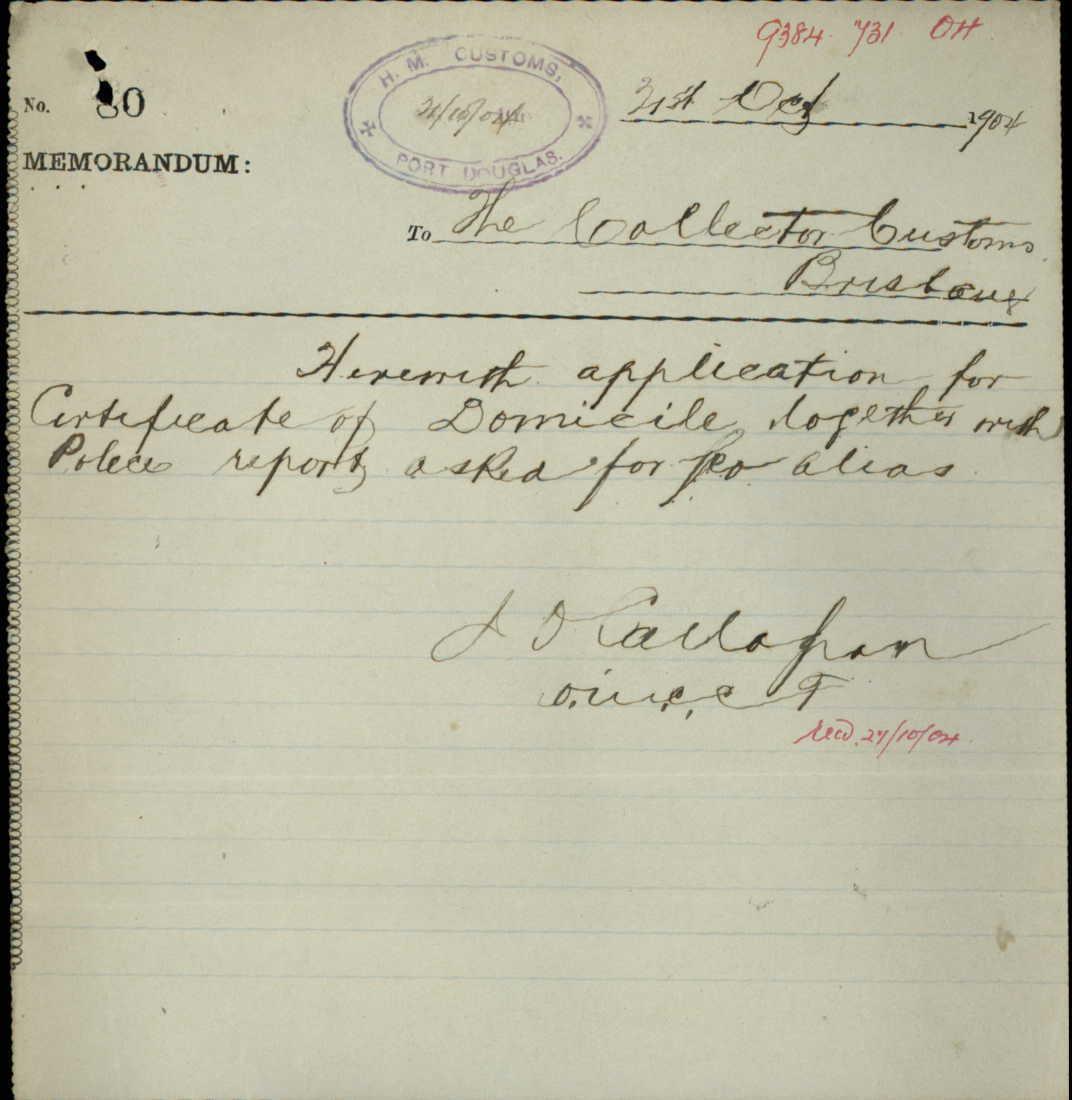 9384 731 04
No. 80
H. M. CUSTOMS,
21/10/04
PORT DOUGLAS.
21st Oct 1904
MEMORANDUM:
To The Collector Customs
Brisbane
Herewith application for
Certificate of Domicile together with
Police report asked for alias
J O'Callaghan
Recd. 27/10/04